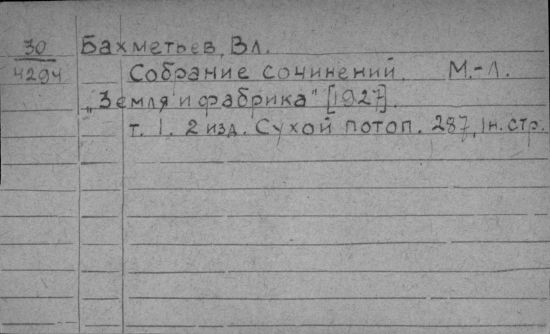 30 Бахметьев, Вл.
4294 Собрание сочинений. М.-Л.
„Земля и фабрика" [1927].
т. 1. 2 изд. Сухой потоп. 287, 1 н. стр.